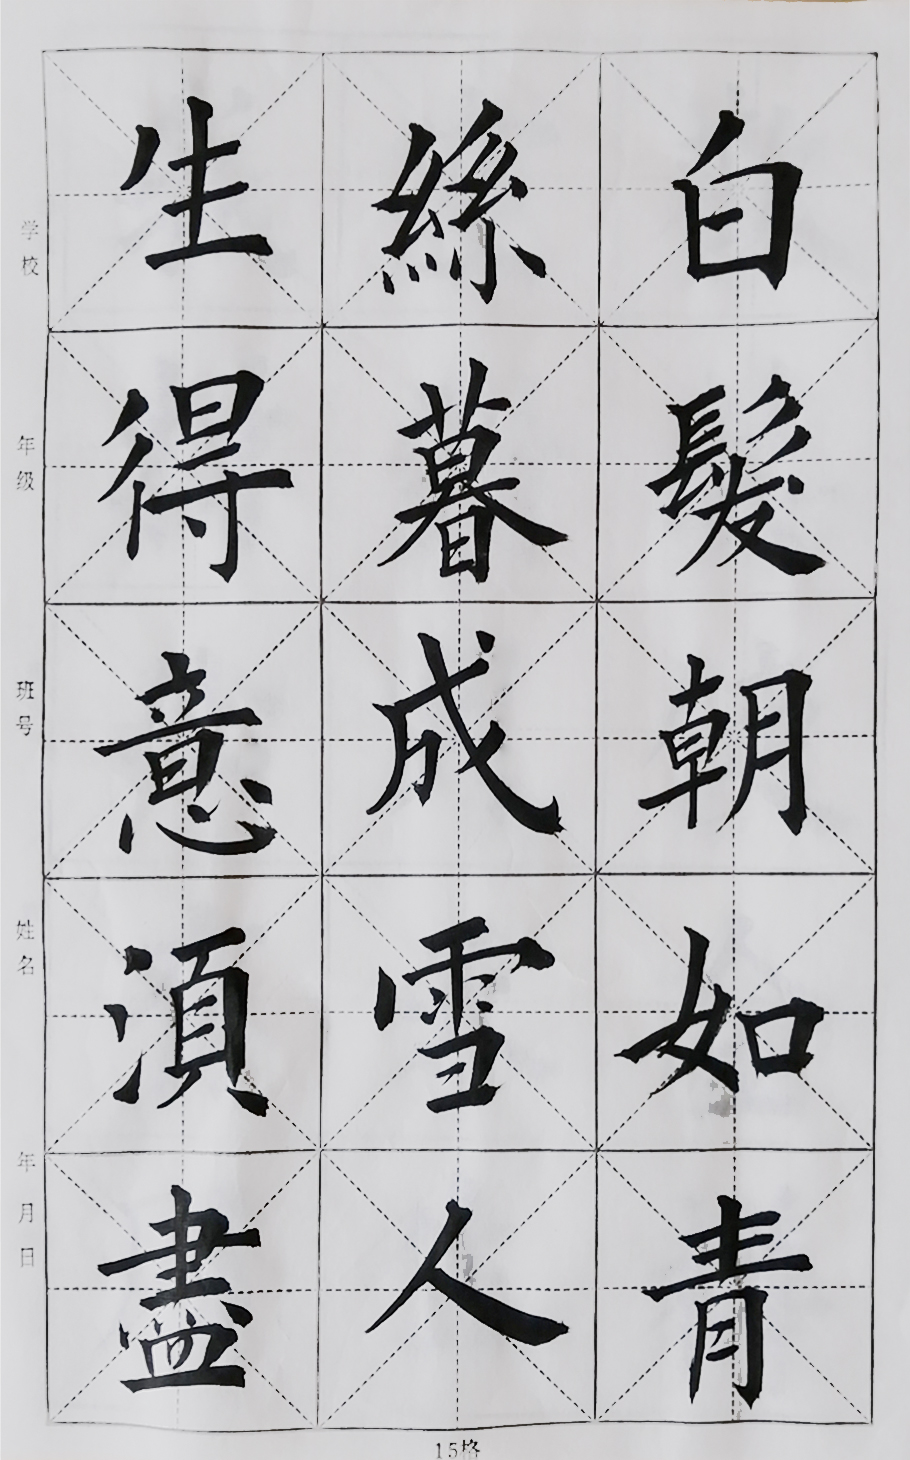 白髮朝如青
絲暮成雪人
生得意湏盡
学校
年级
班号
姓名
年月日
15格